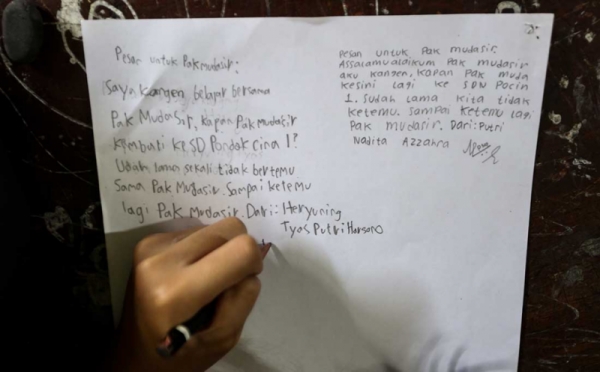 Pesan untuk Pak mudasir:
Saya kangen belajar bersama
Pak Mudasir, kapan Pak mudasir
kembali ke SD Pondok cina 1?
Udah lama sekali tidak bertemu
Sama Pak Mudasir. Sampai ketemu
lagi Pak Mudasir. Dari: Heryuning
Tyas Putri Harsono
Pesan untuk Pak mudasir
Assalamualaikum Pak mudasir
aku kangen, kapan Pak muda
kesini lagi ke SDN Pocin
1. Sudah lama kita tidak
ketemu. Sampai ketemu lagi
Pak mudasir. Dari: Putri
Nadita Azzahra